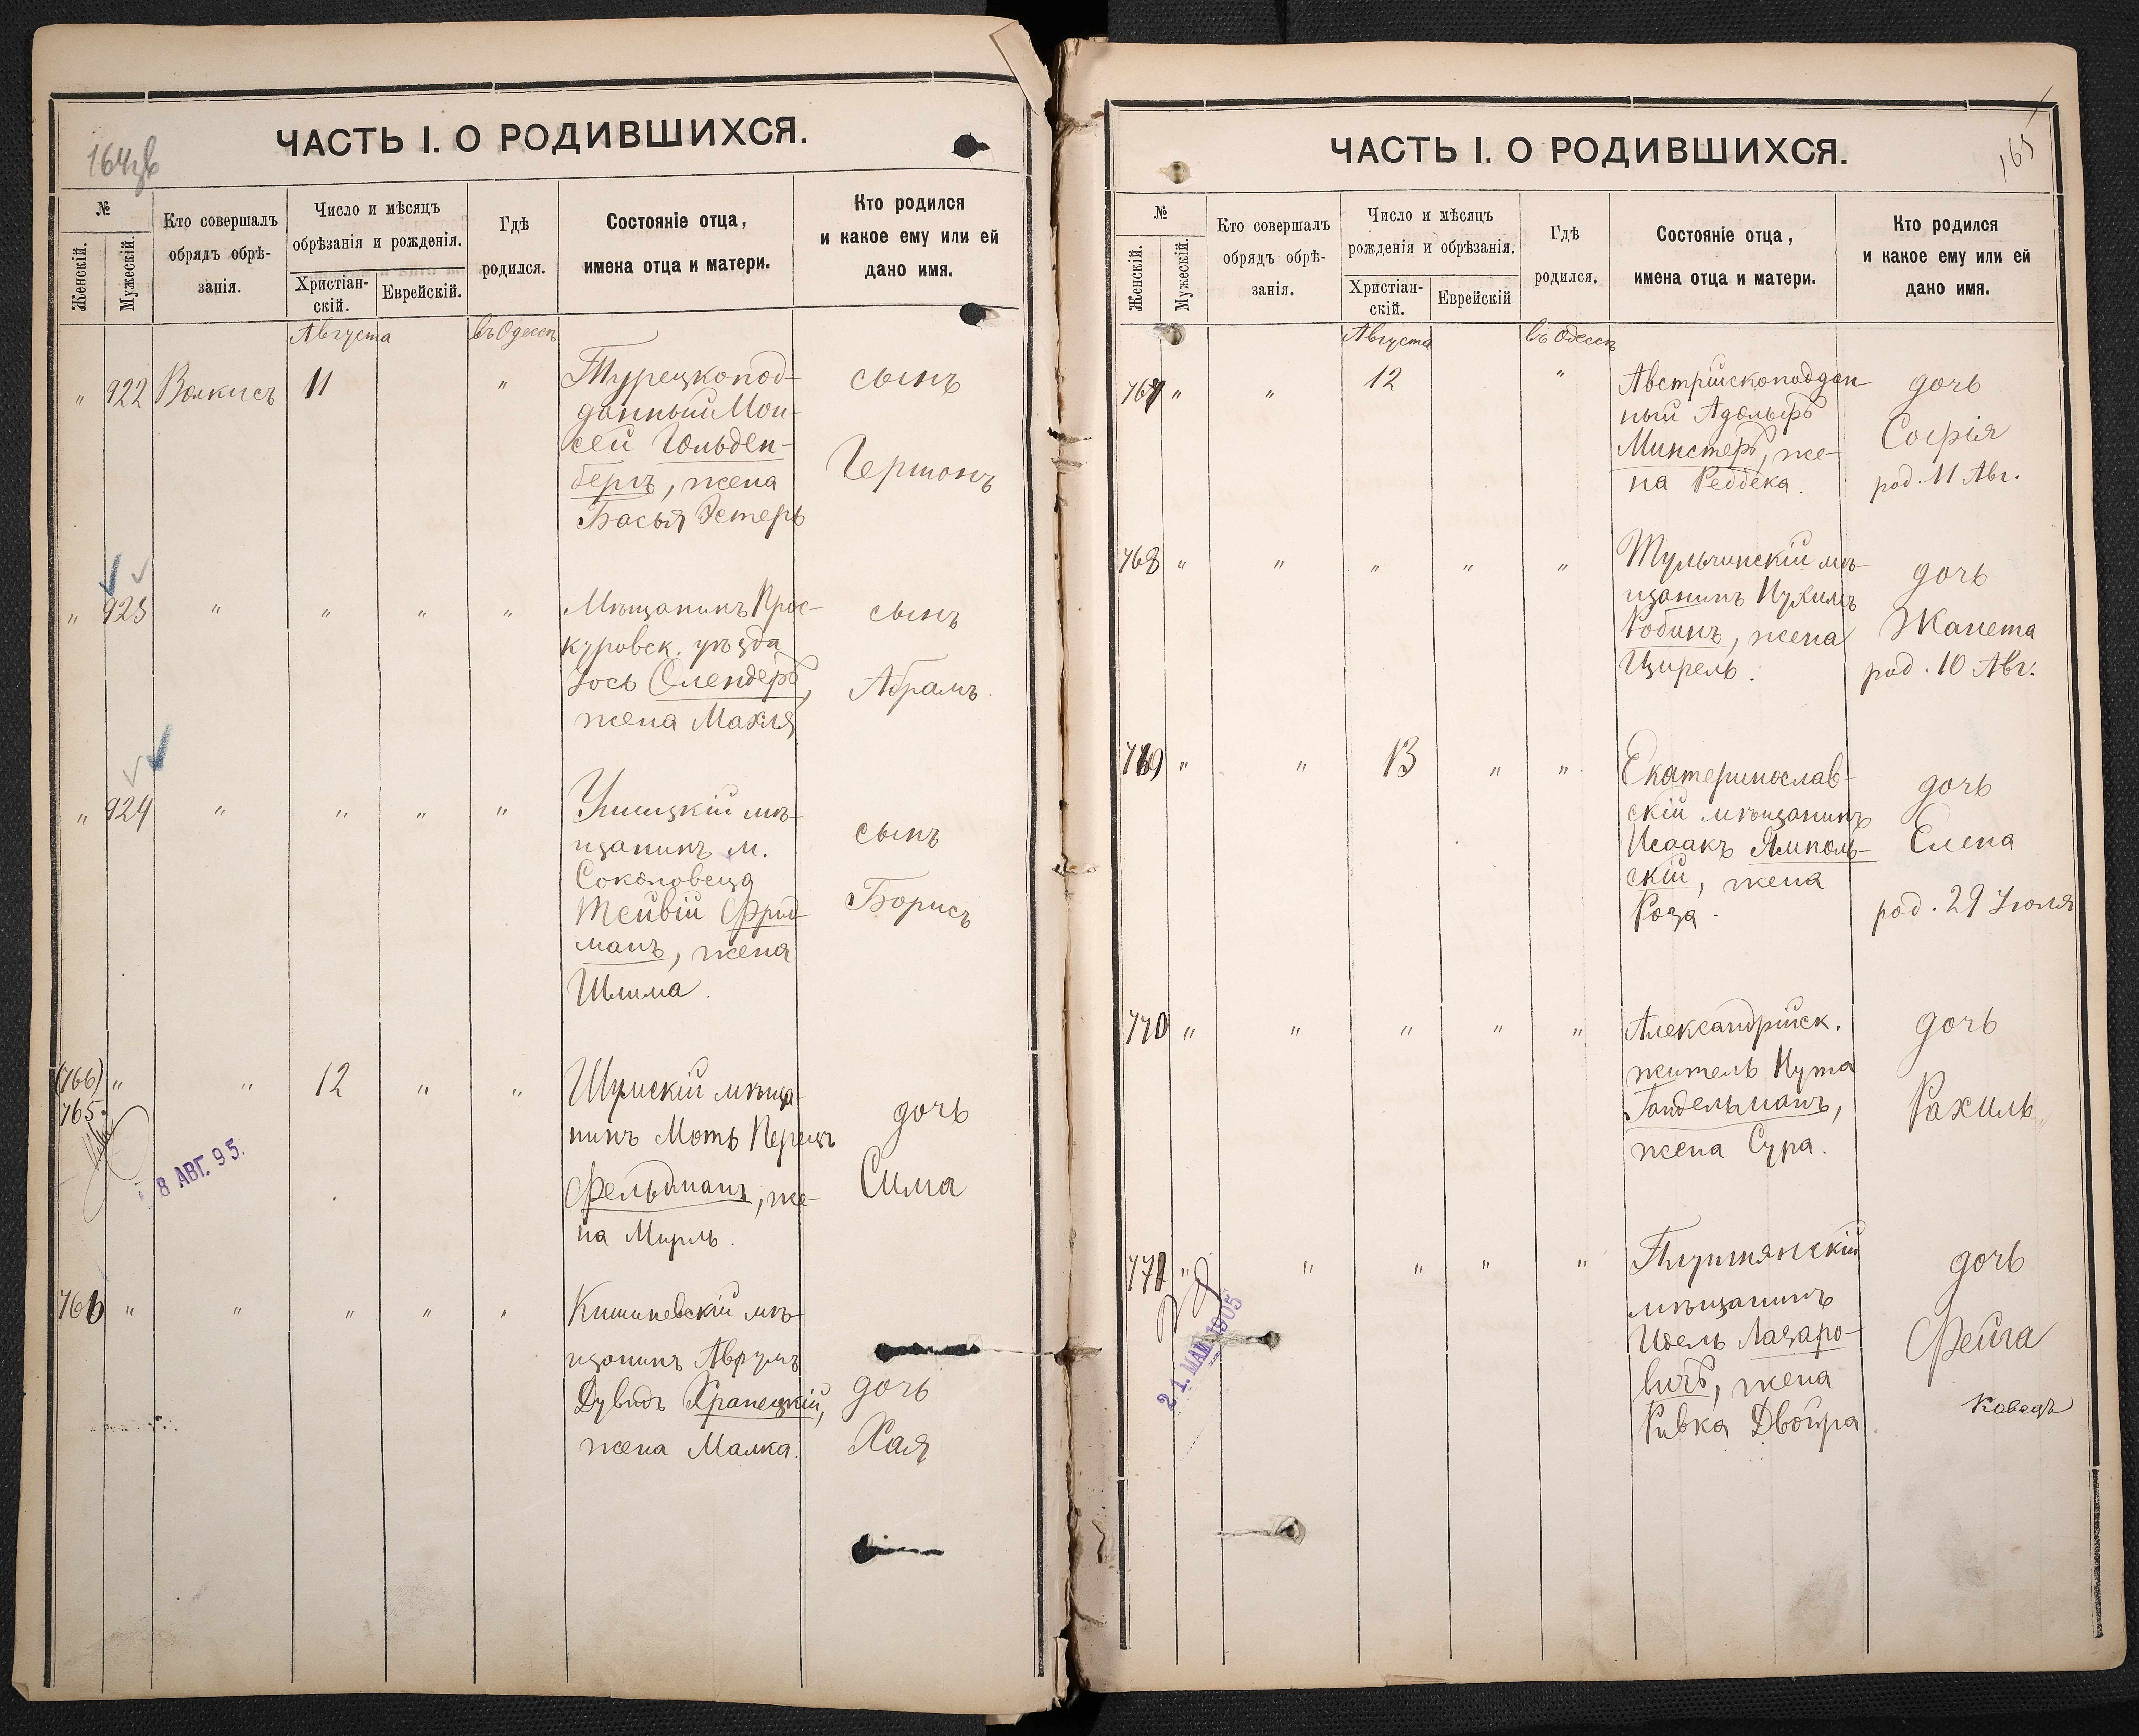 164зв
ЧАСТЬ I. О РОДИВШИХСЯ.
№
Женскій.
Мужескій.
Кто совершалъ
обрядъ обрѣ-
занія.
Число и мѣсяцъ
обрѣзанія и рожденія.
Христіан-
скій.
Еврейскій.
Гдѣ
родился.
Состояніе отца,
имена отца и матери.
Кто родился
и какое ему или ей
дано имя.
Августа
въ Одессѣ
" 922 11 "
Турецкопод-
данный Мои-
сей Гольден-
бергъ, жена
Бася Эстеръ
сынъ
Гершонъ
" 923 " " " "
Мѣщанинъ Прос-
куровск. уѣзда
Іось Олендеръ,
жена Махля
сынъ
Абрамъ
" 924 " " " "
Ушицкій мѣ-
щанинъ м.
Тейвій Фрид-
манъ, жена
Шлима.
сынъ
Борисъ
(766) " " 12 " "
765.
8 АВГ. 95.
Шумскій мѣща-
нинъ Моть Перецъ
Фельдманъ, же-
на Мирль.
дочь
Сима
766 " " " " "
Кишиневскій мѣ-
щанинъ Аврумъ
Дувидъ Храпецкій,
жена Малка.
дочь
Хая
165
ЧАСТЬ I. О РОДИВШИХСЯ.
№
Женскій.
Мужескій.
Кто совершалъ
обрядъ обрѣ-
занія.
Число и мѣсяцъ
рожденія и обрѣзанія.
Христіан-
скій.
Еврейскій
Гдѣ
родился.
Состояніе отца,
имена отца и матери.
Кто родился
и какое ему или ей
дано имя.
Августа
въ Одессѣ
767 " " 12 "
Австрійскоподдан
ный Адольфъ
Минстеръ, же-
на Ребека.
дочь
Софія
род. 11 Авг.
768 " " " " "
Тульчинскій мѣ-
щанинъ Нухимъ
Робинъ, жена
Цирель.
дочь
Жанета
род. 10 Авг.
769 " " 13 " "
Екатеринослав-
скій мѣщанинъ
Исаакъ Ямполь-
скій, жена
Роза.
дочь
Елена
род. 29 Іюля
770 " " " " "
Александрійск.
житель Нута
Гандельманъ,
жена Сура.
дочь
Рахиль
771 " " " " "
21. МАЙ 1905
мѣщанинъ
Идель Лазаро-
вичъ, жена
Ривка Двойра
дочь
Фейга